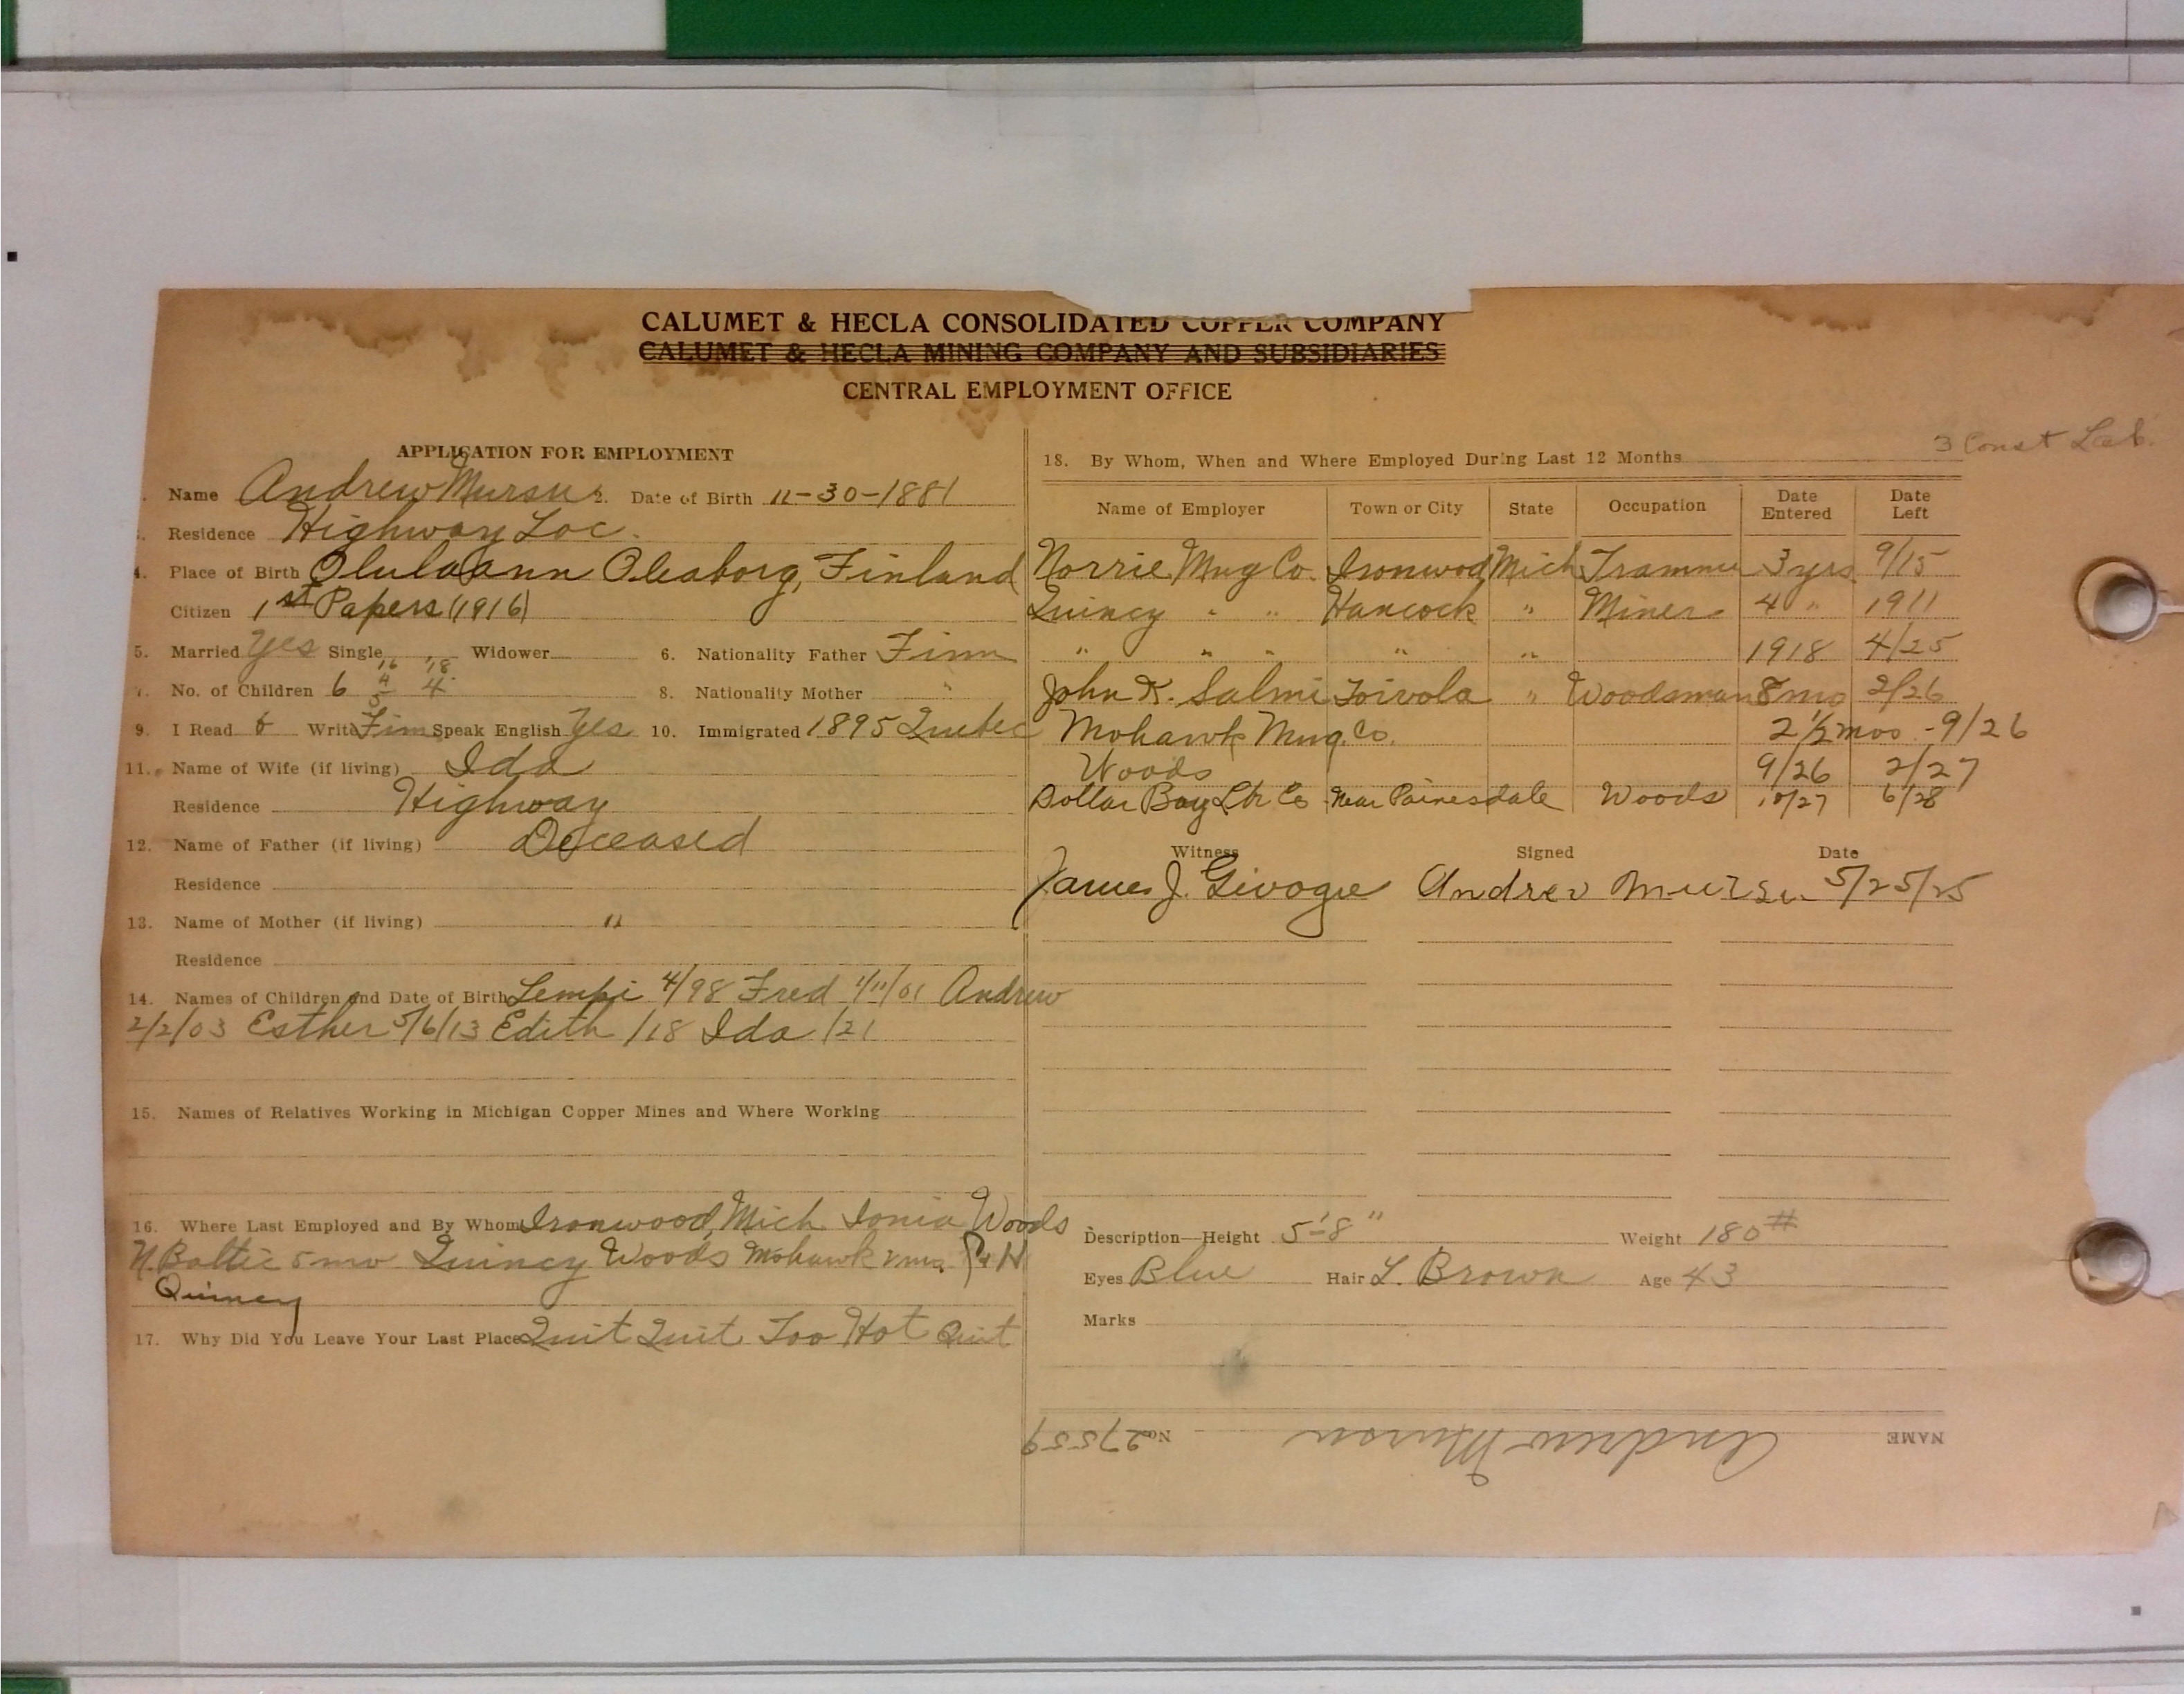 CALUMET & HECLA CONSOLIDATED COPPER COMPANY
CALUMET & HECLA MINING COMPANY AND SUBSIDIARIES
CENTRAL EMPLOYMENT OFFICE
APPLICATION FOR EMPLOYMENT
Name Andrew Mursu 2. Date of Birth 11-30-1881
Residence Highway Loc.
4. Place of Birth Oleaborg, Finland
Citizen 1st Papers (1916)
5. Married Yes Single Widower 6. Nationality Father Finn
16 18
No. of Children 6 4 4 8. Nationality Mother "
9. I Read & Write Finn Speak English Yes 10. Immigrated 1895 Quebec
11. Name of Wife (if living) Ida
Residence Highway
12. Name of Father (if living) Deceased
Residence
13. Name of Mother (if living) "
Residence
14. Names of Children and Date of Birth Lempi 4/98 Fred 1/11/01 Andrew
2/2/03 Esther 5/6/13 Edith /18 Ida /21
15. Names of Relatives Working in Michigan Copper Mines and Where Working
16. Where Last Employed and By Whom Ironwood, Mich Ionia Woods
N. Baltic 5 mo Quincy Woods Mohawk
Quincy
17. Why Did You Leave Your Last Place Quit Quit Too Hot Quit
3 Const Lab.
18. By Whom, When and Where Employed During Last 12 Months
Name of Employer Town or City State Occupation Date Entered Date Left
Norrie Mng Co. Ironwood Mich Trammer 3 yrs. 9/15
Quincy " " Hancock " Miner 4 " 1911
" " " " " 1918 4/25
John K. Salmi Toivola " Woodsman 8 mo 2/26
Mohawk Mng. Co. 2 1/2 mos - 9/26
Woods 9/26 2/27
Dollar Bay Lbr Co Near Painesdale Woods 10/27 6/28
Witness Signed Date
James J. Givogre Andrew Mursu 5/25/25
Description—Height 5'-8" Weight 180#
Eyes Blue Hair L. Brown Age 43
Marks
NAME Andrew Mursu No. 27559